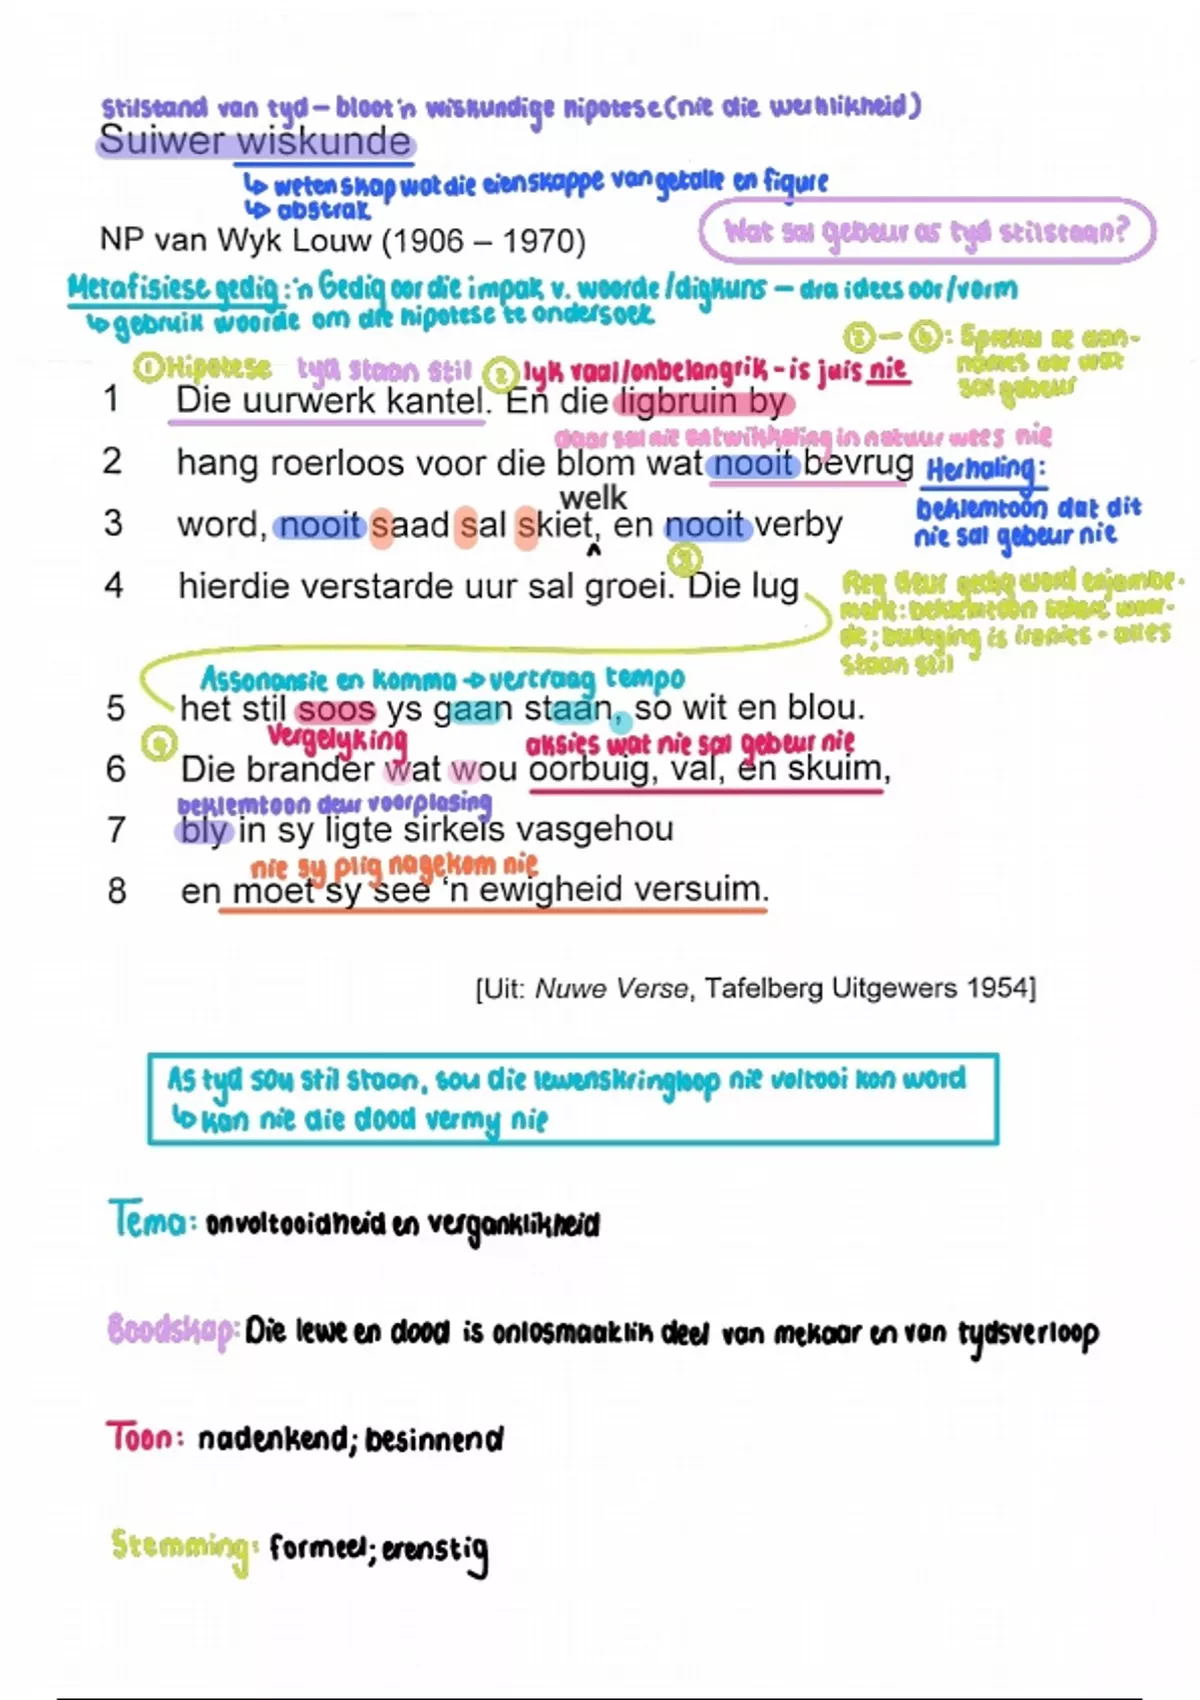 Stilstand van tyd – bloot 'n wiskundige hipotese (nie die werklikheid)
Suiwer wiskunde
↳ wetenskap wat die eienskappe van getalle en figure
↳ abstrak
NP van Wyk Louw (1906 – 1970)
Wat sal gebeur as tyd stilstaan?
Metafisiese gedig: 'n Gedig oor die impak v. woorde/digkuns – dra idees oor/vorm
↳ gebruik woorde om die hipotese te ondersoek
③ – ⑥: Spreker se aan-
names oor wat
sal gebeur
① Hipotese tyd staan stil ② lyk vaal/onbelangrik - is juis nie
1 Die uurwerk kantel. En die ligbruin by
daar sal nie ontwikkeling in natuur wees nie
2 hang roerloos voor die blom wat nooit bevrug
Herhaling:
beklemtoon dat dit
nie sal gebeur nie
welk
3 word, nooit saad sal skiet, en nooit verby
③
4 hierdie verstarde uur sal groei. Die lug
Reg deur gedig word enjambe-
ment: beklemtoon sekere woor-
de; beweging is ironies - alles
staan stil
Assonansie en komma → vertraag tempo
5 het stil soos ys gaan staan, so wit en blou.
④ Vergelyking aksies wat nie sal gebeur nie
6 Die brander wat wou oorbuig, val, en skuim,
beklemtoon deur voorplasing
7 bly in sy ligte sirkels vasgehou
nie sy plig nagekom nie
8 en moet sy see ‘n ewigheid versuim.
[Uit: Nuwe Verse, Tafelberg Uitgewers 1954]
As tyd sou stil staan, sou die lewenskringloop nie voltooi kon word
↳ kan nie die dood vermy nie
Tema: onvoltooidheid en verganklikheid
Boodskap: Die lewe en dood is onlosmaaklik deel van mekaar en van tydsverloop
Toon: nadenkend; besinnend
Stemming: formeel; erenstig